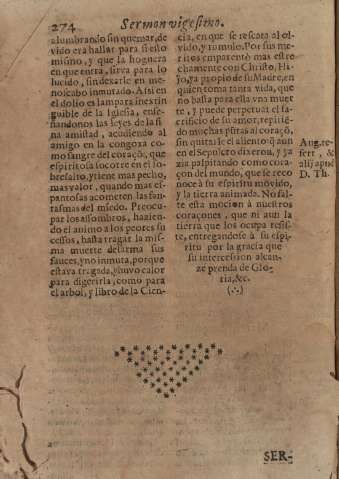 274 Sermon vigesimo.
alumbrando sin quemar, de
vido era hallar para si esto
mismo, y que la hoguera
en que entra, sirva para lo
lucido, sin dexarle en me-
noscabo inmutado. Assi en
el dolio es lampara inextin
guible de la Iglesia, ense-
ñandonos las leyes de la fi
na amistad, acudiendo al
amigo en la congoxa co-
mo sangre del coraçõ, que
espiritosa socorre en el so-
bresalto, y tiene mas pecho,
mas valor, quando mas es-
pantosas acometen las fan-
tasmas del miedo. Preocu-
par los assombros, hazien-
do el animo a los peores su
cessos, hasta tragar la mis-
ma muerte desarma sus
fauces, y no inmuta, porque
estava tragada, y huvo calor
para digerirla, como para
el arbol, y libro de la Cien-
cia, en que se rescata al ol-
vido, y tumulo. Por sus me-
ritos emparentò mas estre
chamente con Christo, Hi-
jo, ya propio de su Madre, en
quien toma tanta vida, que
no halla para ella vna muer
te, y puede perpetuar el sa-
crificio de su amor, repitiẽ
do muchas posturas al coraçõ,
sin quitarle el aliento: q̃ aun
en el Sepulcro dixeron, y ya
zia palpitando como cora-
çon del mundo, que se reco
noce à su espiritu movido,
y la tierra animada. No fal-
te esta mocion à nuestros
coraçones, que ni aun la
tierra que los ocupa resis-
te, entregandose à su espi-
ritu por la gracia que
su intercession alcan-
ze prenda de Glo-
ria, &c.
(∴)
Aug. re-
fert, &
alij apud
D. Th.
SER-